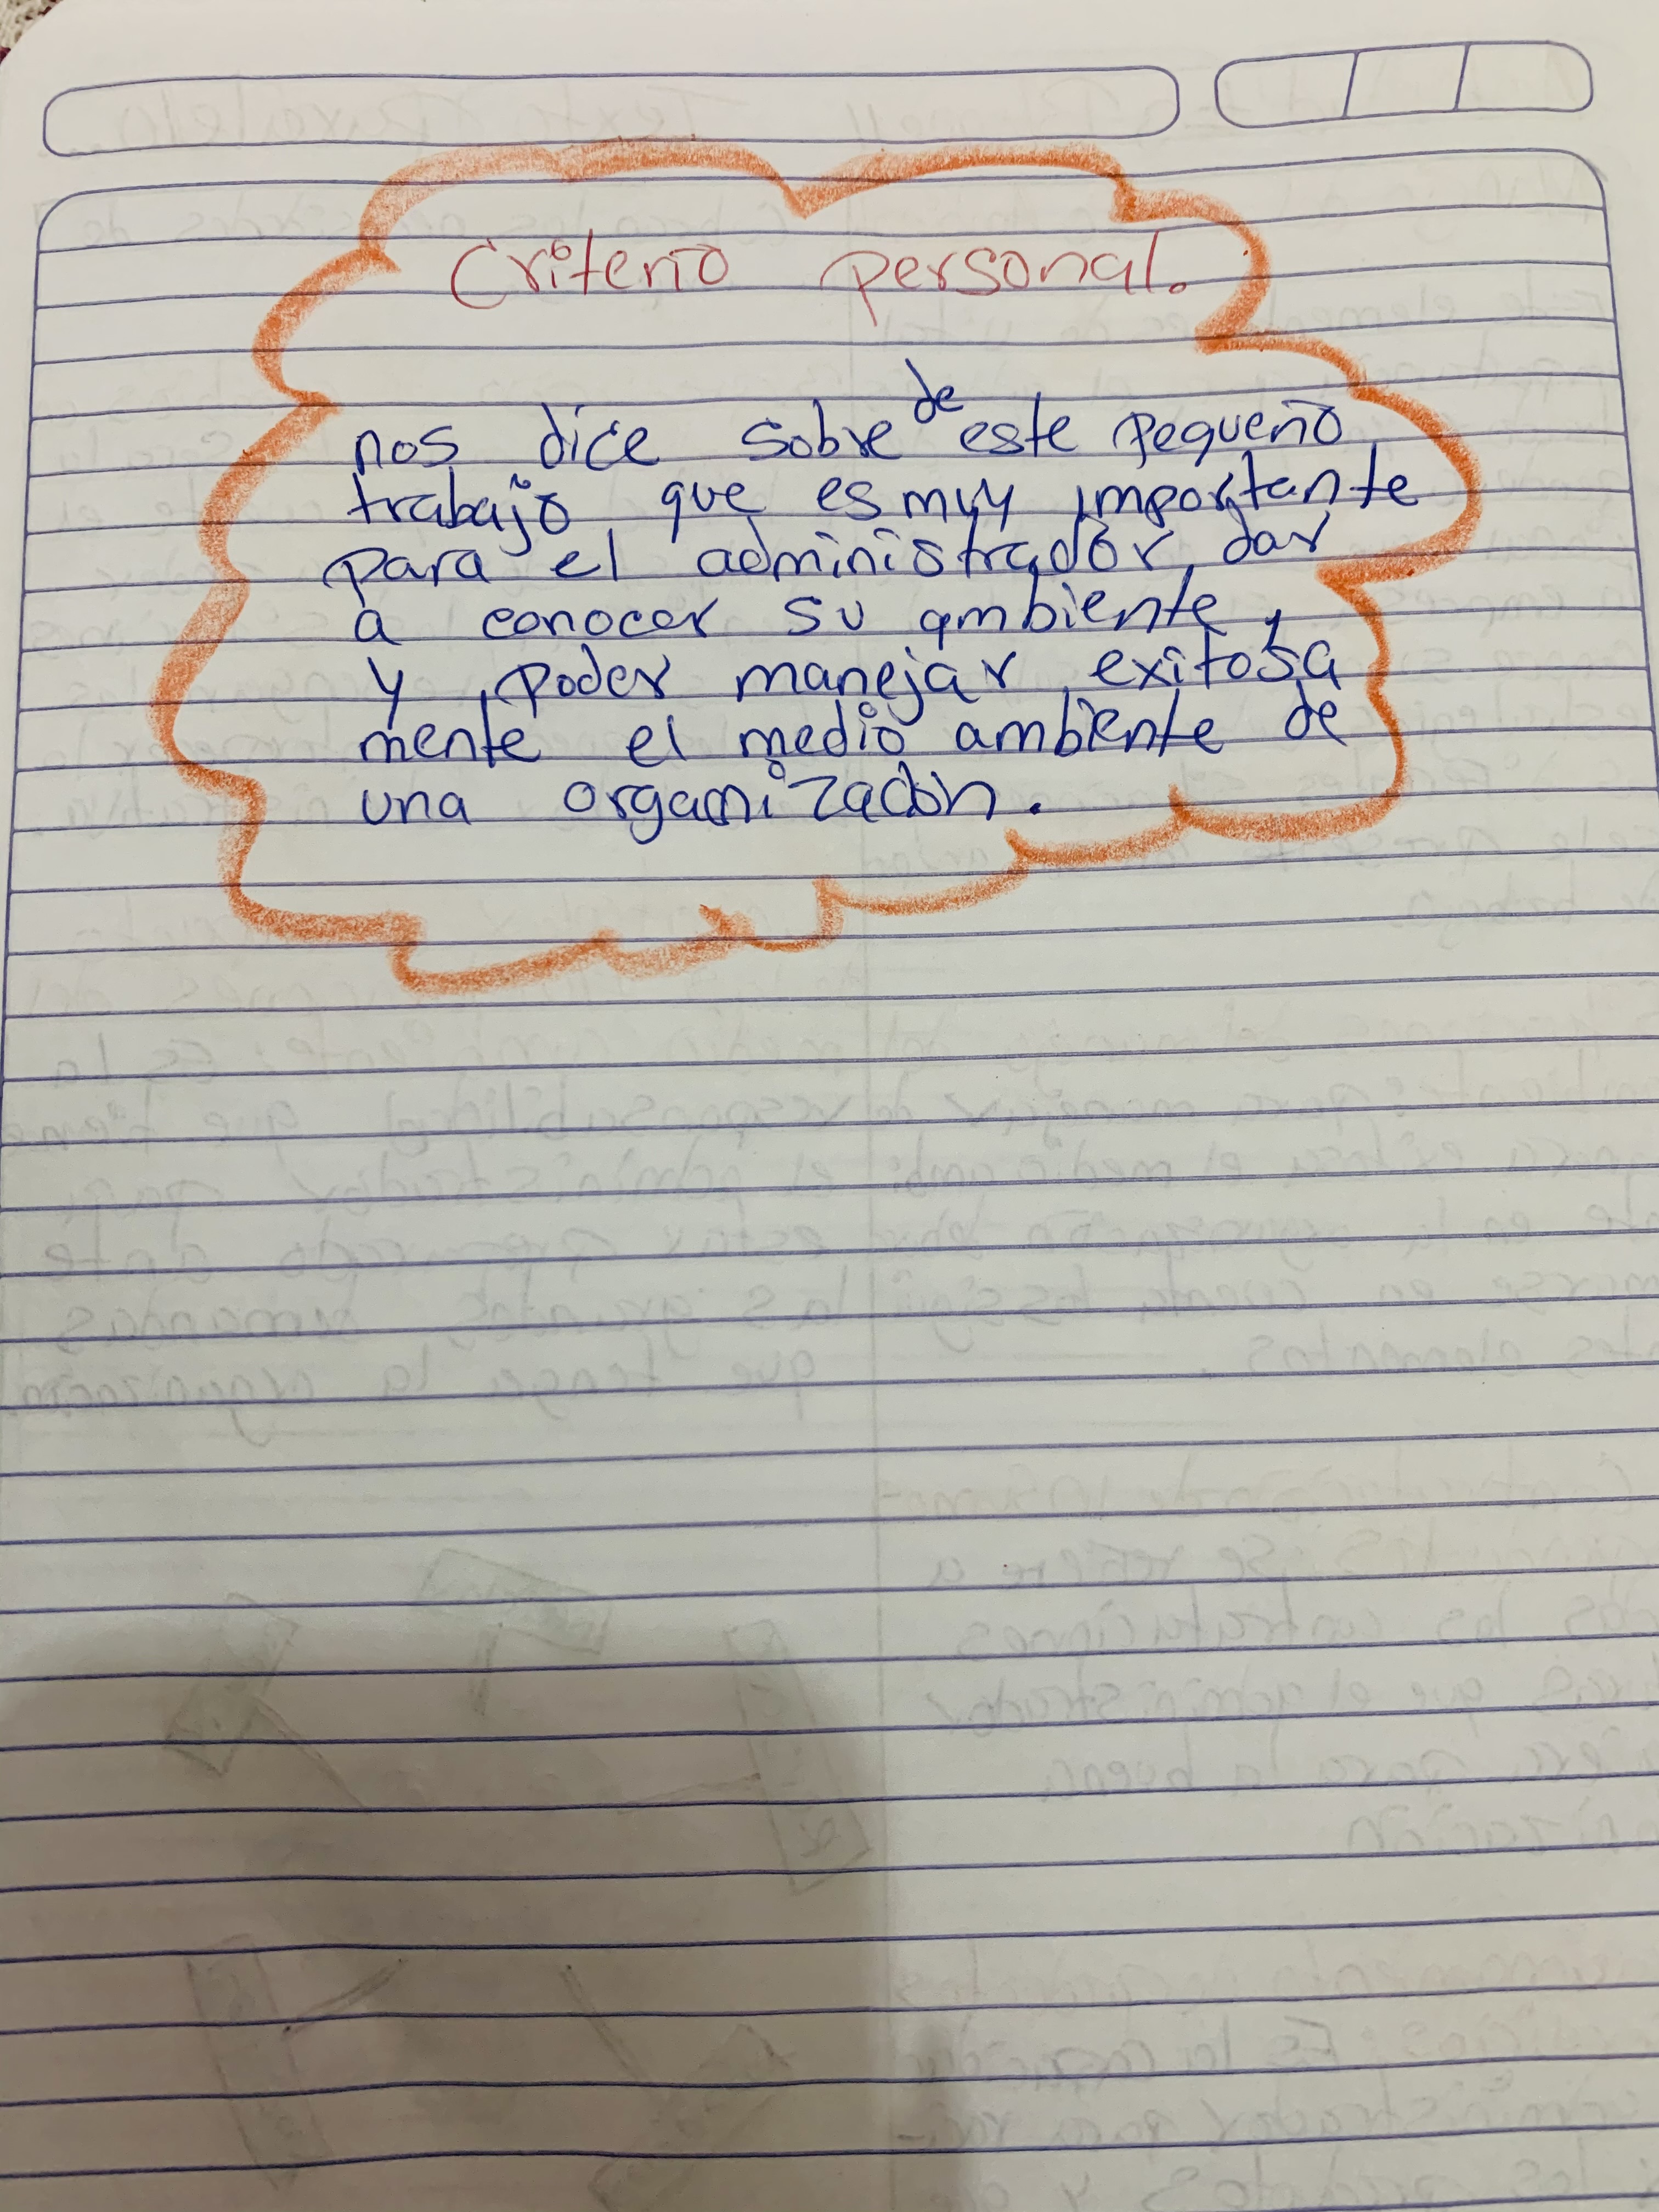 Criterio personal.
nos dice sobre de este pequeño
trabajo que es muy importante
para el administrador, dar
a conocer su ambiente,
y poder manejar exitosa
mente el medio ambiente de
una organización.